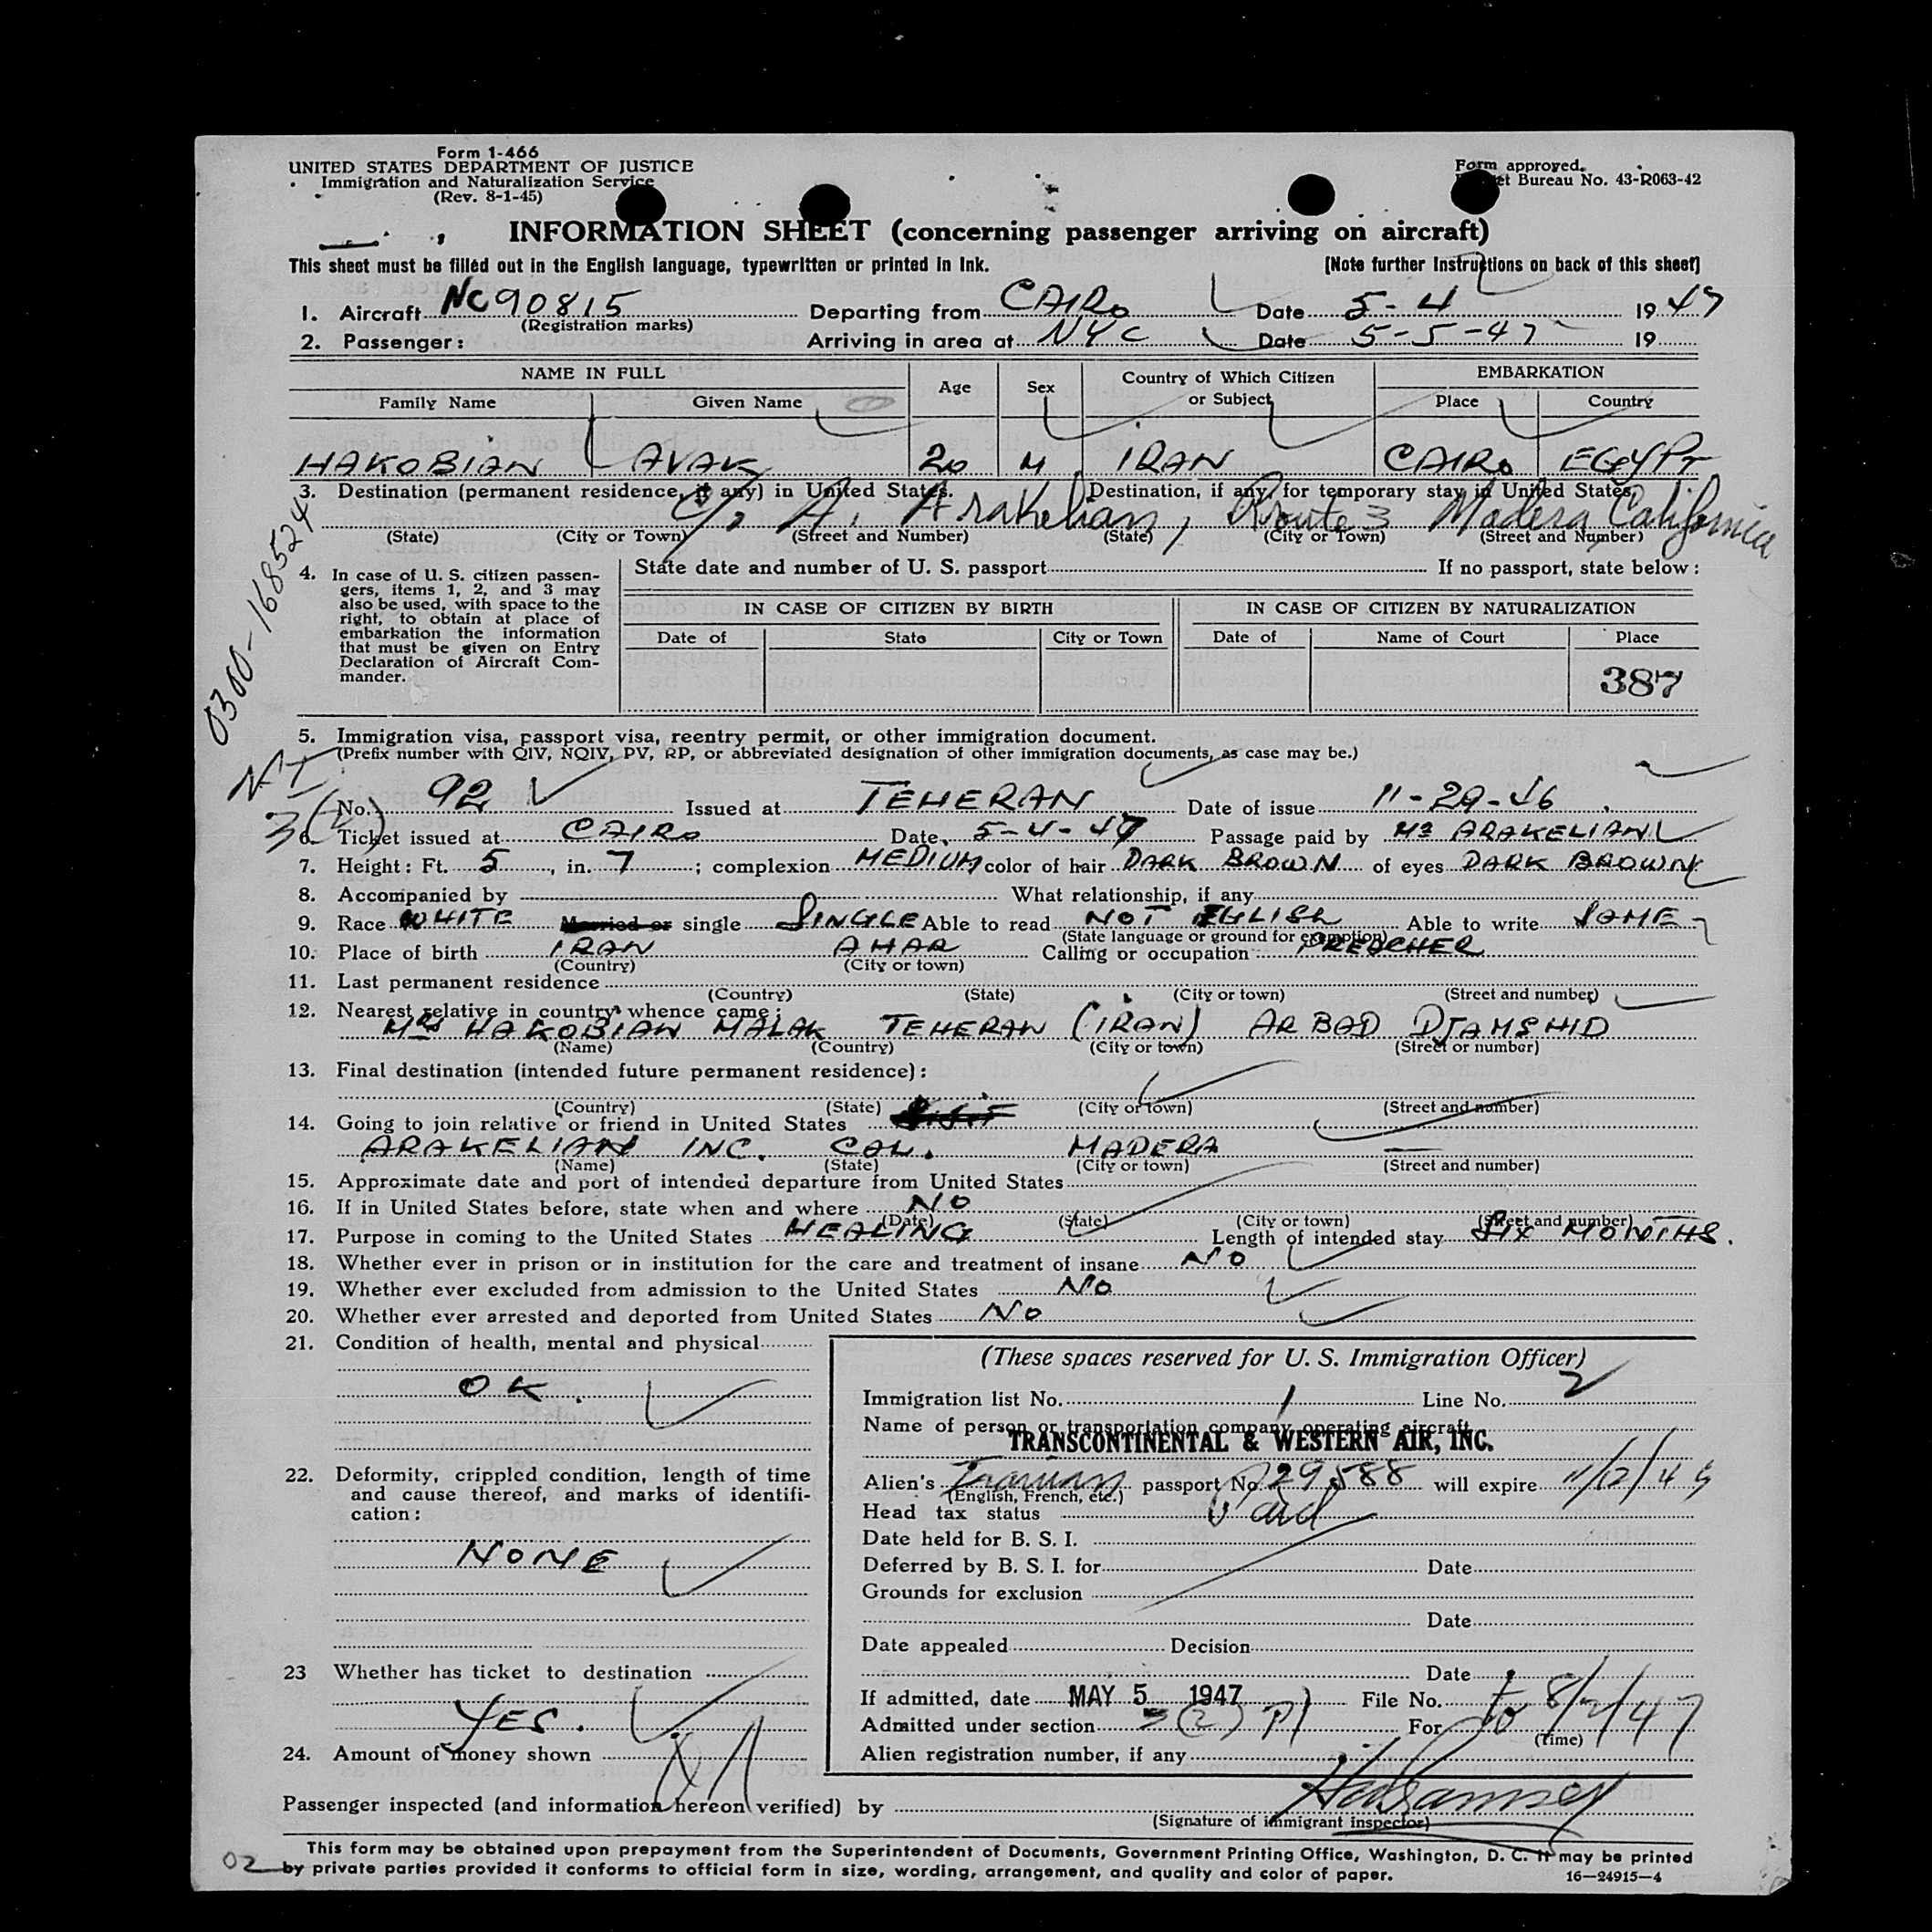 Form 1-466
UNITED STATES DEPARTMENT OF JUSTICE
Immigration and Naturalization Service
(Rev. 8-1-45)
Form approved.
et Bureau No. 43-R063-42
INFORMATION SHEET (concerning passenger arriving on aircraft)
This sheet must be filled out in the English language, typewritten or printed in ink.
[Note further instructions on back of this sheet]
1. Aircraft NC90815 Departing from CAIRO Date 5-4 1947
(Registration marks)
2. Passenger: Arriving in area at NYC Date 5-5-47 19
NAME IN FULL Age Sex Country of Which Citizen or Subject EMBARKATION
Family Name Given Name Place Country
HAKOBIAN AVAK 20 M IRAN CAIRO EGYPT
3. Destination (permanent residence, if any) in United States. Destination, if any, for temporary stay in United States,
c/o A. Arakelian, Route 3 Madera, California
(State) (City or Town) (Street and Number) (State) (City or Town) (Street and Number)
0300-168524
4. In case of U. S. citizen passengers, items 1, 2, and 3 may also be used, with space to the right, to obtain at place of embarkation the information that must be given on Entry Declaration of Aircraft Commander.
State date and number of U. S. passport If no passport, state below:
IN CASE OF CITIZEN BY BIRTH IN CASE OF CITIZEN BY NATURALIZATION
Date of State City or Town Date of Name of Court Place
387
5. Immigration visa, passport visa, reentry permit, or other immigration document.
(Prefix number with QIV, NQIV, PV, RP, or abbreviated designation of other immigration documents, as case may be.)
NI
3(2)
No. 92 Issued at TEHERAN Date of issue 11-29-46
6. Ticket issued at CAIRO Date 5-4-47 Passage paid by Mr ARAKELIAN
7. Height: Ft. 5, in. 7; complexion MEDIUM color of hair DARK BROWN of eyes DARK BROWN
8. Accompanied by What relationship, if any
9. Race WHITE Married or single SINGLE Able to read NOT EGLISH Able to write SAME
(State language or ground for exemption)
10. Place of birth IRAN AHAR Calling or occupation PREACHER
(Country) (City or town)
11. Last permanent residence
(Country) (State) (City or town) (Street and number)
12. Nearest relative in country whence came:
Mrs HAKOBIAN MALAK TEHERAN (IRAN) ARBAD DJAMSHID
(Name) (Country) (City or town) (Street or number)
13. Final destination (intended future permanent residence):
(Country) (State) (City or town) (Street and number)
14. Going to join relative or friend in United States
ARAKELIAN INC. CAL. MADERA —
(Name) (State) (City or town) (Street and number)
15. Approximate date and port of intended departure from United States
16. If in United States before, state when and where NO
(Date) (State) (City or town) (Street and number)
17. Purpose in coming to the United States HEALING Length of intended stay SIX MONTHS.
18. Whether ever in prison or in institution for the care and treatment of insane NO
19. Whether ever excluded from admission to the United States NO
20. Whether ever arrested and deported from United States NO
21. Condition of health, mental and physical
OK.
22. Deformity, crippled condition, length of time and cause thereof, and marks of identification:
NONE
23 Whether has ticket to destination
YES.
24. Amount of money shown
(These spaces reserved for U. S. Immigration Officer)
Immigration list No. 1 Line No. 2
Name of person or transportation company operating aircraft
TRANSCONTINENTAL & WESTERN AIR, INC.
Alien's Iranian passport No. 29588 will expire 11/12/49
(English, French, etc.)
Head tax status Paid
Date held for B. S. I.
Deferred by B. S. I. for Date
Grounds for exclusion
Date
Date appealed Decision
Date
If admitted, date MAY 5 1947 File No.
Admitted under section 3(2) P1 For to 8/ /47
(Time)
Alien registration number, if any
Passenger inspected (and information hereon verified) by
(Signature of immigrant inspector)
This form may be obtained upon prepayment from the Superintendent of Documents, Government Printing Office, Washington, D. C. It may be printed
by private parties provided it conforms to official form in size, wording, arrangement, and quality and color of paper.
16—24915—4
02